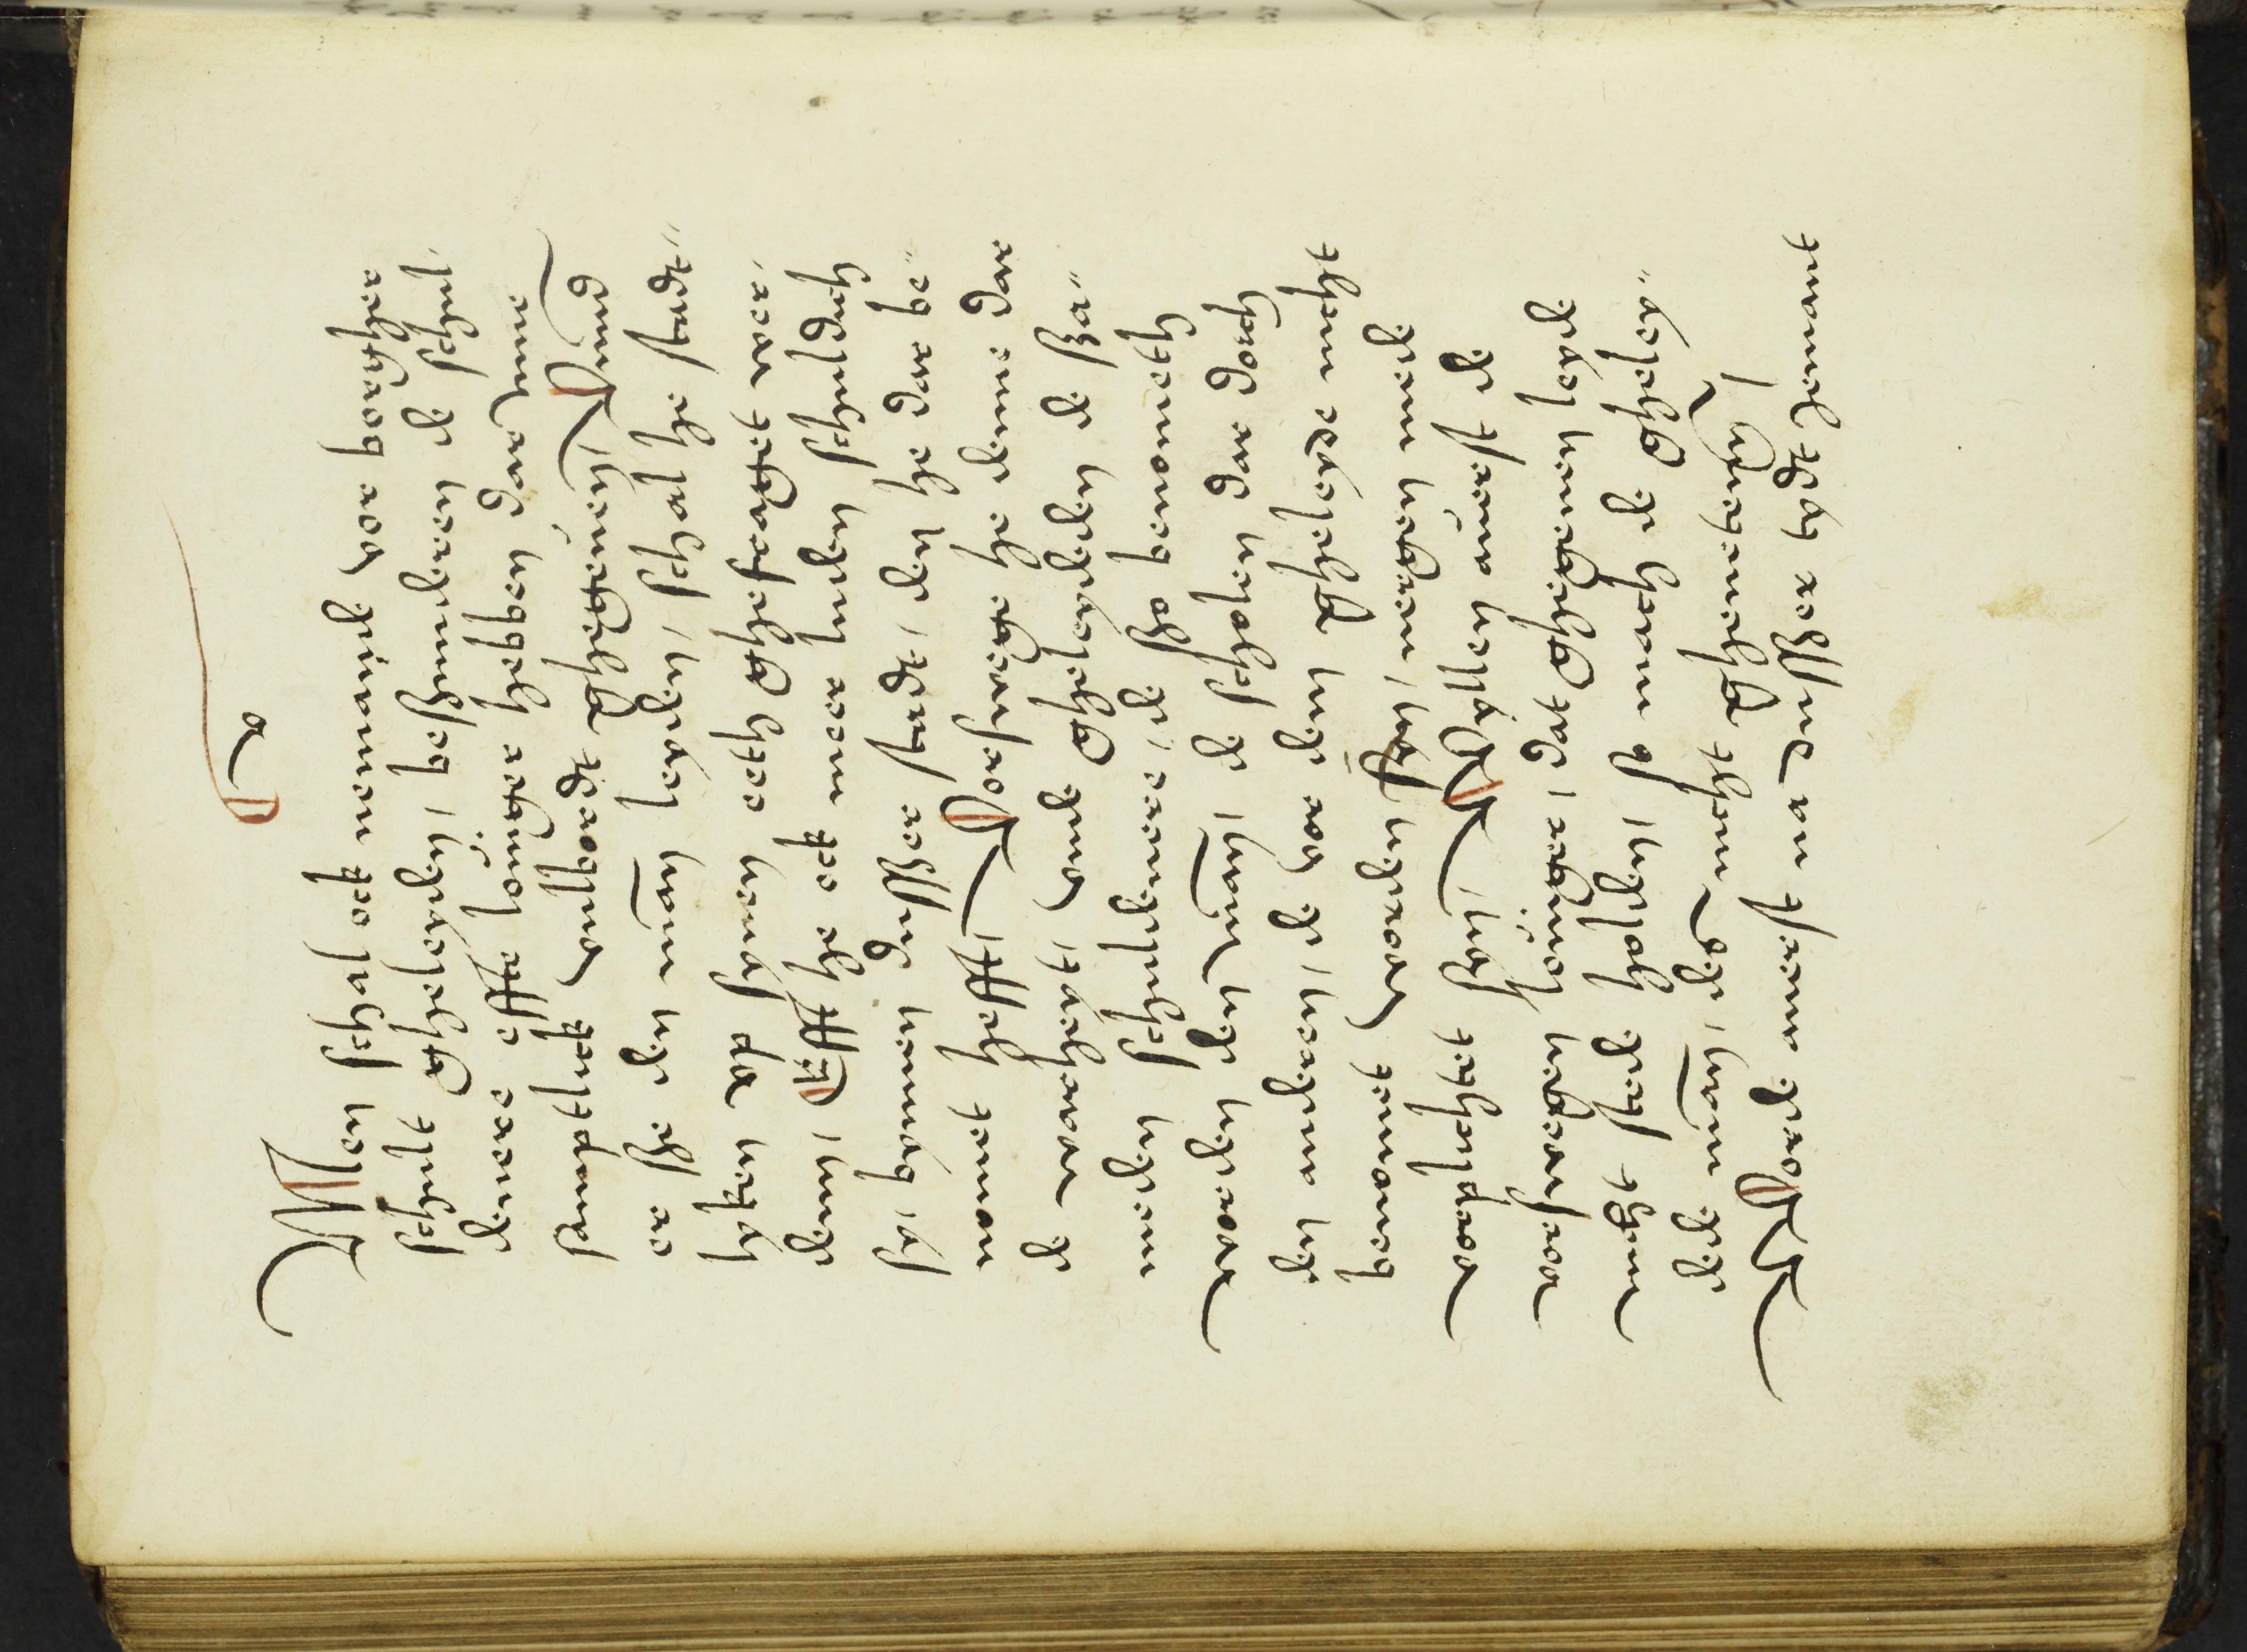 V
Men schal ock nemande vor borgher
schult gheleyden, beßunderen de schul-
denere effte löuyger hebben dar unne
samptlick vulbordt ghegeuen, Vnnd
ere ße den man leyden, schal he stadt-
lyken vp synen eeth ghefraget wer-
denn, Efft he ock meer luden schuldich
sy, bynnen dusßer stadt, den he dar be-
nomet hefft, Vorswege he denne dar
de warheyt, vnde gheleydeden de ßa-
meden schuldenere, de ßo benometh
worden den man, de scholen dar doch
den anderen, de vor dem gheleyde nicht
benomet worden syn, nergen mede
vorplichtet syn, Wyllen auerst de
vorswegen löuyger, dat ghegeuen leyde
nicht stede holden, so mach de gheley-
dede man, des nicht ghenethenn,
Worde auerst na dusßer tydt jemant